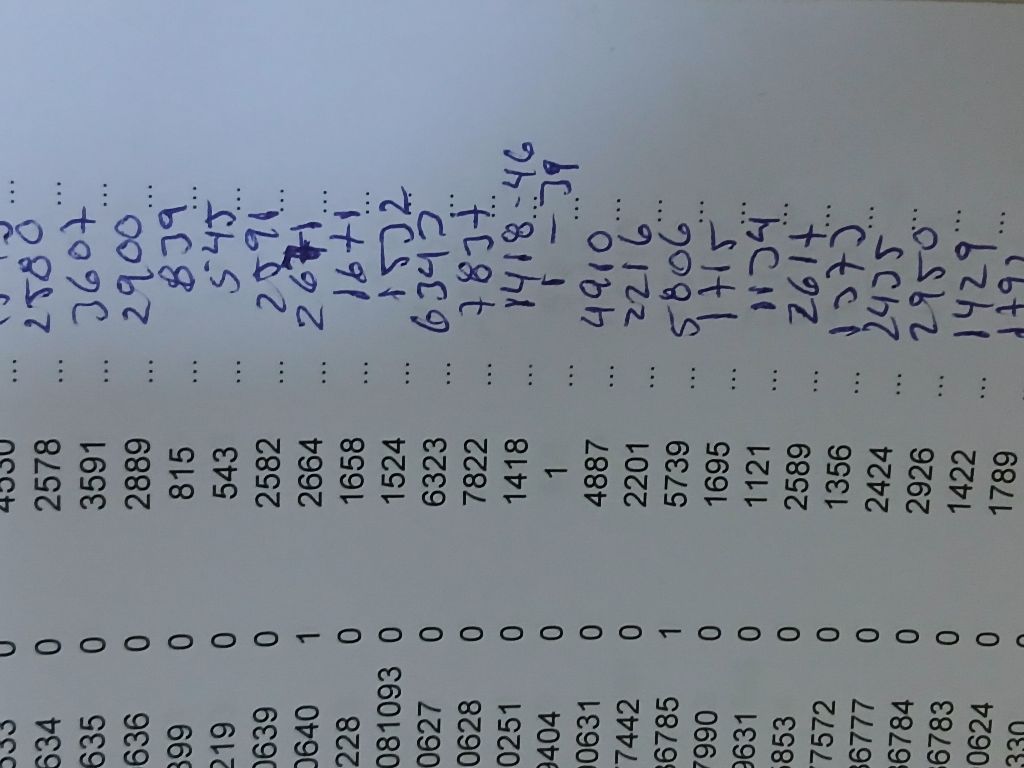 634 0 2578 ... 2580 ...
635 0 3591 ... 3607 ...
636 0 2889 ... 2900 ...
399 0 815 ... 839 ...
219 0 543 ... 545 ...
0639 0 2582 ... 2591 ...
0640 1 2664 ... 2671 ...
228 0 1658 ... 1671 ...
081093 0 1524 ... 1532 ...
0627 0 6323 ... 6343 ...
0628 0 7822 ... 7837 ...
0251 0 1418 ... 1418-46 ...
9404 0 1 ... 1 - 39 ...
00631 0 4887 ... 4910 ...
7442 0 2201 ... 2216 ...
86785 1 5739 ... 5806 ...
7990 0 1695 ... 1715 ...
9631 0 1121 ... 1134 ...
6853 0 2589 ... 2617 ...
77572 0 1356 ... 1373 ...
86777 0 2424 ... 2435 ...
86784 0 2926 ... 2950 ...
86783 0 1422 ... 1429 ...
0624 0 1789